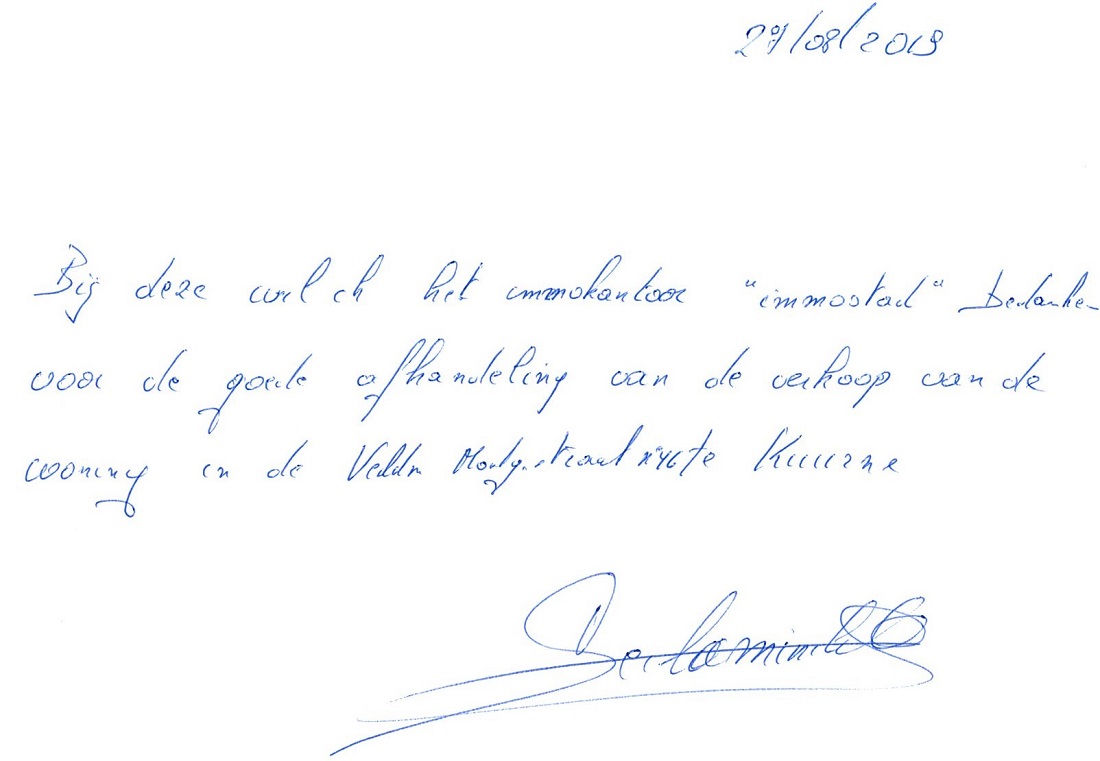 27/08/2019
Bij deze wil ik het immokantoor "immostad" bedanken
voor de goede afhandeling van de verkoop van de
woning in de te Kuurne